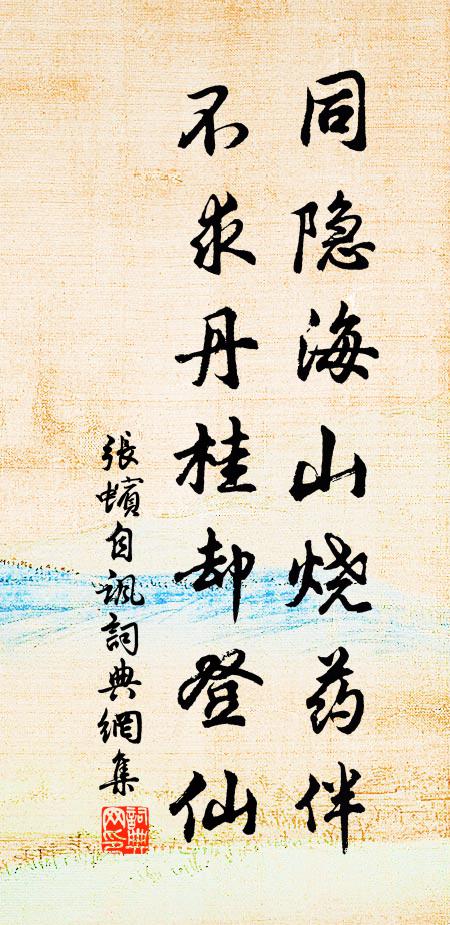 同隐海山烧药伴
不求丹桂却登仙
張蠙自讽詞典網集
詞典网印